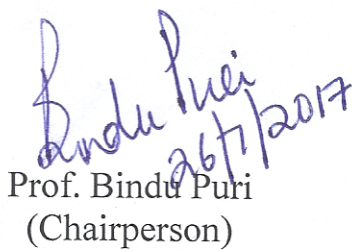 Bindu Puri
26/7/2017
Prof. Bindu Puri
(Chairperson)